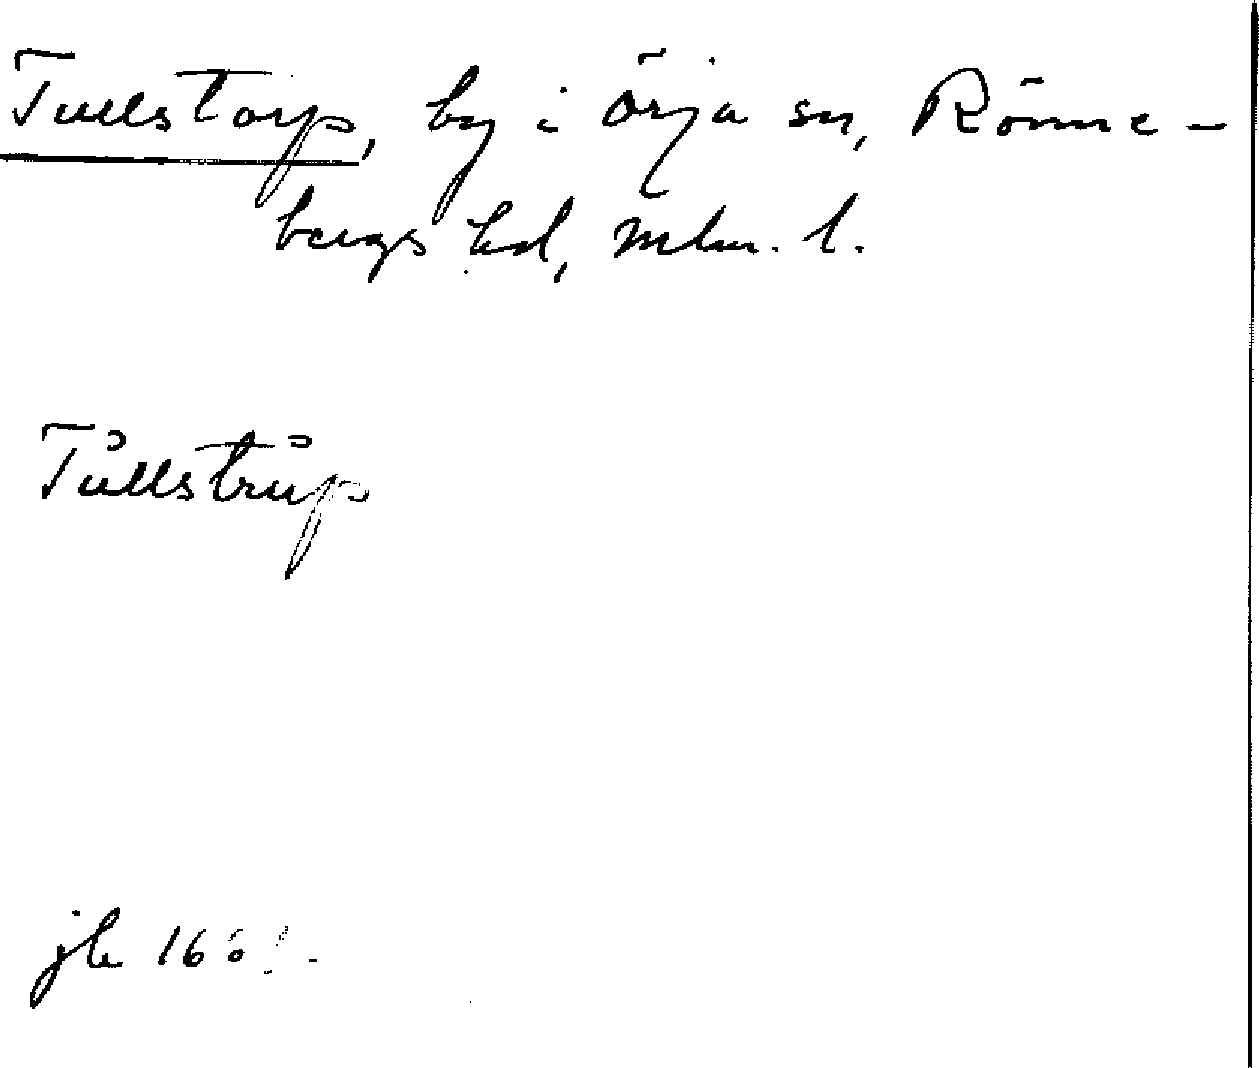 Tullstorp, by i Örja sn, Rönne-
bergs hd, Mlm. l.
Tullstrup
jb